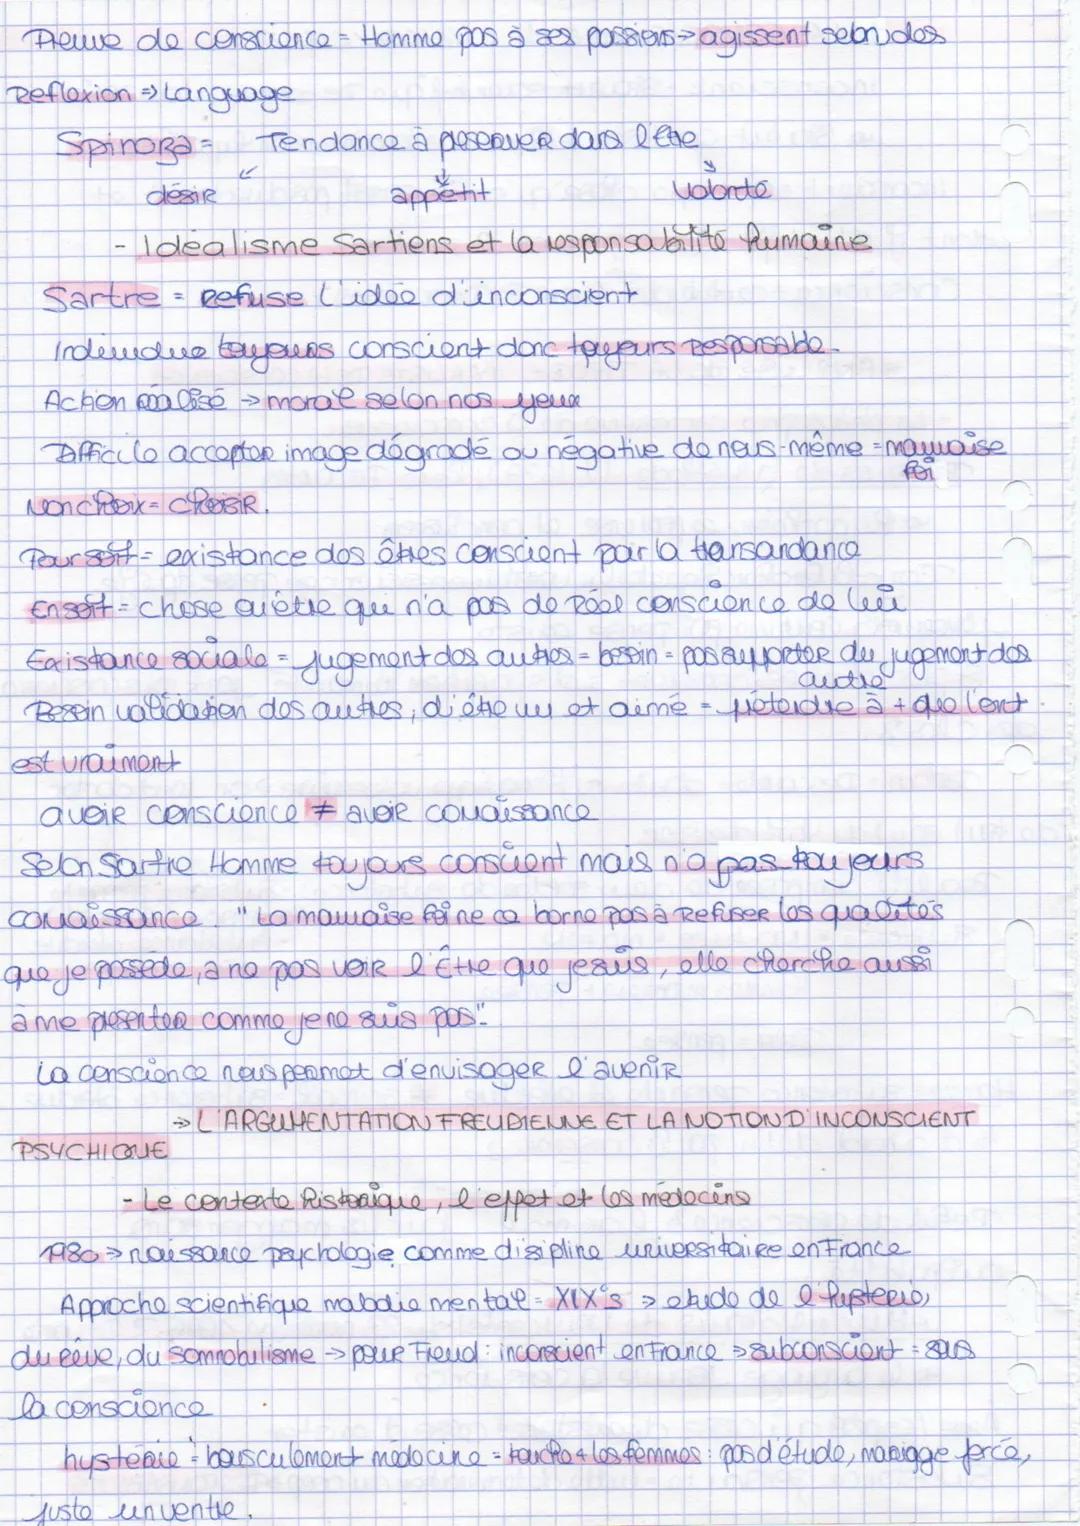 Preuve de conscience = Homme pas à ses passions → agissent selon des
Reflexion ⇒ Language
Spinoza = Tendance à perseverer dans l'être
désir appétit volonté
- Idéalisme Sartiens et la responsabilité humaine
Sartre = refuse l'idée d'inconscient
Individue toujours conscient donc toujours responsable.
Action réalisé → moral selon nos yeux
Difficile accepter image dégradé ou négative de nous-même = mauvaise
foi
Non choix = choisir.
Pour soit = existance des êtres conscient par la transandance
En soit = chose ou être qui n'a pas de réel conscience de lui
Existance sociale = jugement des autres = besoin = pas supporter du jugement des
autre
Besoin validation des autres, d'être vu et aimé = prétendre à + que l'ont
est vraiment
avoir conscience ≠ avoir conaissance
Selon Sartre Homme toujours conscient mais n'a pas toujours
conaissance. "La mauvaise foi ne ce borne pas à refuser les qualités
que je possede, a ne pas voir l'Être que je suis, elle cherche aussi
à me presenter comme je ne suis pas".
La conscience nous permet d'envisager l'avenir
→ L'ARGUMENTATION FREUDIENNE ET LA NOTION D'INCONSCIENT
PSYCHIQUE
- Le contexte historique, l'effet et les médecins
1980 ⇒ naissance psychologie comme disipline universitaire en France
Approche scientifique maladie mental = XIX°s ⇒ etude de l'hysterie,
du rêve, du somnobulisme → pour Freud : inconscient en France ⇒ subconscient = sous
la conscience
hystérie = bousculement médecine = touche + les femmes : pas d'étude, mariage forcé,
juste un ventre.